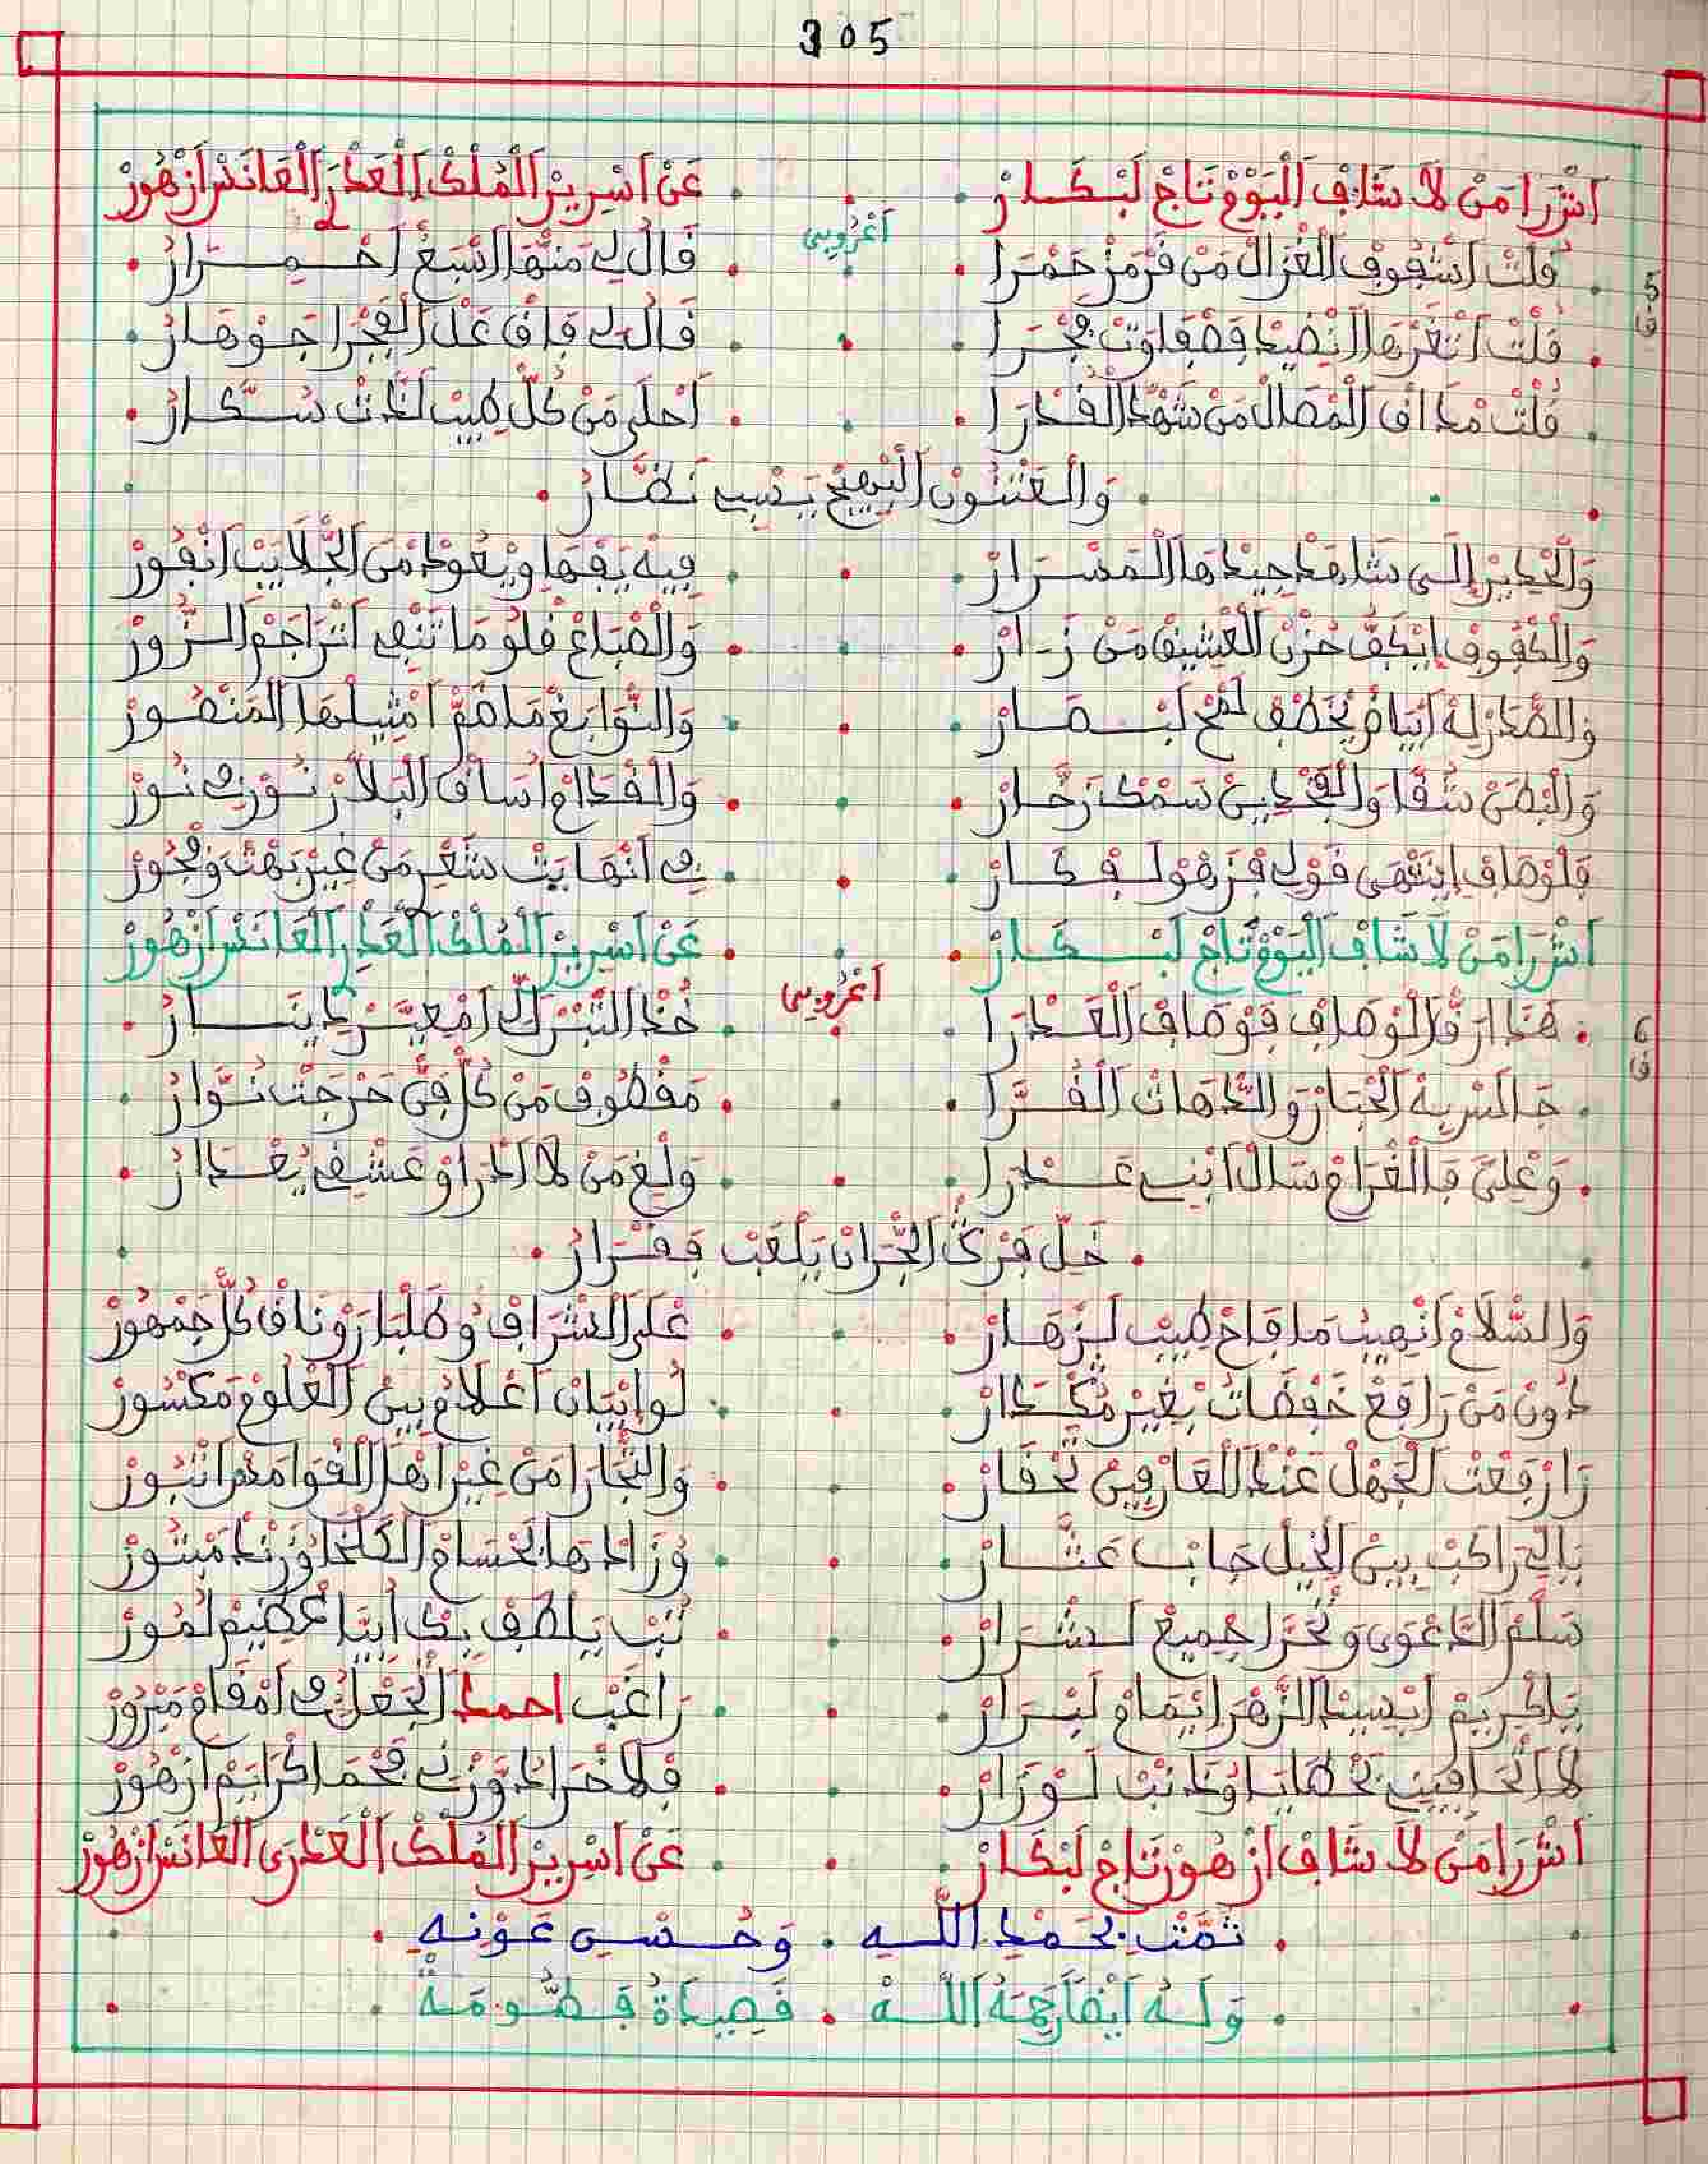 305
اَشْرَا مَنْ لَا شَافْ الْيَوْمْ تَاجْ لَبْكَارْ . عَنْ اَسْرِيرْ الْمُلْكْ الْعَدْرَ الْعَانَسْ ازْهُورْ
اعْرُوبِي
5 ف
قُلْتْ اشْفُوفْ الْغْزَالْ مَنْ قَرْمَزْ حَمْرَا . قَالْ لِي مَنْهَا اسْبَغْ احْمِرَارُ
قُلْتْ اَثْغَرْهَا انْضِيدْ فَصْفَاوَتْ فَجْرَا . قَالْ لِي فَاقْ عَلْ الْفَجْرَ اجَوْهَارُ
قُلْتْ مْدَاقْ الْمْصَالْ مَنْ شَهْدْ الْقَدْرَا . اَحْلَى مَنْ كُلّْ طِيبْ لَدَّتْ سُكَّارُ
وَالْعَتْنُونْ الْبْهِيجْ يَسْبِي نَظَّارُ
وَالْجِيدْ إِلَى شَاهَدْ جِيدْهَا الْمَسْرَارْ . فِيهْ يَفْهَا وِيعُودْ مَنْ الْجْلَايَبْ انْفُورْ
وَالْكْفُوفْ ايْكَفّْ حُزْنْ الْعْشِيقْ مَنْ زَارْ . وَالْصْبَاعْ قْلُو مَا تَنْفِي اتْرَاجَمْ الزُّورْ
وَالصّْدَرْ لِهْ ابْيَاضْ يَخْطَفْ لَمْحْ لَبْصَارْ . وَالنّْوَابَغْ مَا هُمْ امْثِيلْهَا الْمَنْصُورْ
وَالْبْطَنْ شُقَّا وَالْفْخَادِينْ سَمْكْ زَخَّارْ . وَالْقْدَامْ اُسَاقْ الْبَلَّارْ نُورْ فِي نُورْ
فَلَوْصَافْ اِنْتْهَى قَوْلِي فْزَهْوْ لَفْكَارْ . فِي انْهَايَتْ شَعْرِ مَنْ غِيرْ بَهْتْ وَفْجُورْ
اَشْرَا مَنْ لَا شَافْ الْيَوْمْ تَاجْ لَبْكَارْ . عَنْ اَسْرِيرْ الْمُلْكْ الْعَدْرَ الْعَانَسْ ازْهُورْ
اعْرُوبِي
6 ف
هَذَا ارْقَا لَوْصَافْ فَوْصَافْ الْعَدْرَا . خُدْ التّْبَرْ لِّي امْعَيَّرْ يَا يَسَارُ
جَالَسْ بِهْ الْحْبَارْ وَالدّْهَاتْ الْقُرَّا . مَقْطُوفْ مَنْ كُلّْ فَنّْ حَرْجَتْ نُوَّارُ
وَعْلِيَ فَالْغْرَامْ سَالْ ابْنِي عَدْرَا . وَلِيعْ مَنْ لَا ادْرَا وْعَشْقِي يَعْدَارُ
خَلِّ فَرْكْ الْحْرَانْ يَلْعَبْ فَقْرَارُ
وَالسّْلَامْ انْهِيبْ مَا فَاحْ طِيبْ لَزْهَارْ . عْلَى الشّْرَافْ وُطَلْبَا رَوْنَاقْ كُلّْ جَمْهُورْ
دُونْ مَنْ رَافَعْ خَفْضَاتُ بْغِيرْ مُكْدَارْ . لُو ايْبَانْ اعْلَامُ بِينْ الْعْلُومْ مَكْسُورْ
رَا رَفْعَتْ الْجَهْلْ عَنْدْ الْعَارْفِينْ تَحْقَارْ . وَالتّْجَارَا مَنْ غِيرْ اهْلْ الْقْوَامَهْرْ اتْبُورْ
يَالِّي رَاكَبْ بِينْ الْخِيلْ جَايْبْ عَثَّارْ . وْزَادْهَا بَحْسَامْ الْكَلْخْ اوْزَنْدْ مَبْتُورْ
سَلَّمْ الدَّعْوَى وَتْحَرَّا جْمِيعْ لَشْرَارْ . تُبْ يَلْطَفْ بِكْ ايْتَا عْظِيمْ لُمُورْ
يَاكْرِيمْ ابْسِيدْ الزَّهْرَا ايْمَامْ لَبْرَارْ . رَاغْبْ احمد الْجَعْلُ فِي امْقَامْ مَبْرُورْ
لَا اتْحَافِينِي بَخْطَايَا اوْدَنْبْ لَوْزَارْ . فْلَاخْرَا دْوَزْنِي فَحْمَا اكْرَايَمْ ازْهُورْ
اَشْرَا مَنْ لَا شَافْ ازْهُورْ تَاجْ لَبْكَارْ . عَنْ اَسْرِيرْ الْمُلْكْ الْعَدْرَى الْعَانَسْ ازْهُورْ
تَمَّتْ بِحَمْدِ اللَّهِ . وَحُسْنِ عَوْنِهِ
وَلَهُ أَيْضًا رَحِمَهُ اللَّهْ . قَصِيدَةُ فَطُّومَةْ